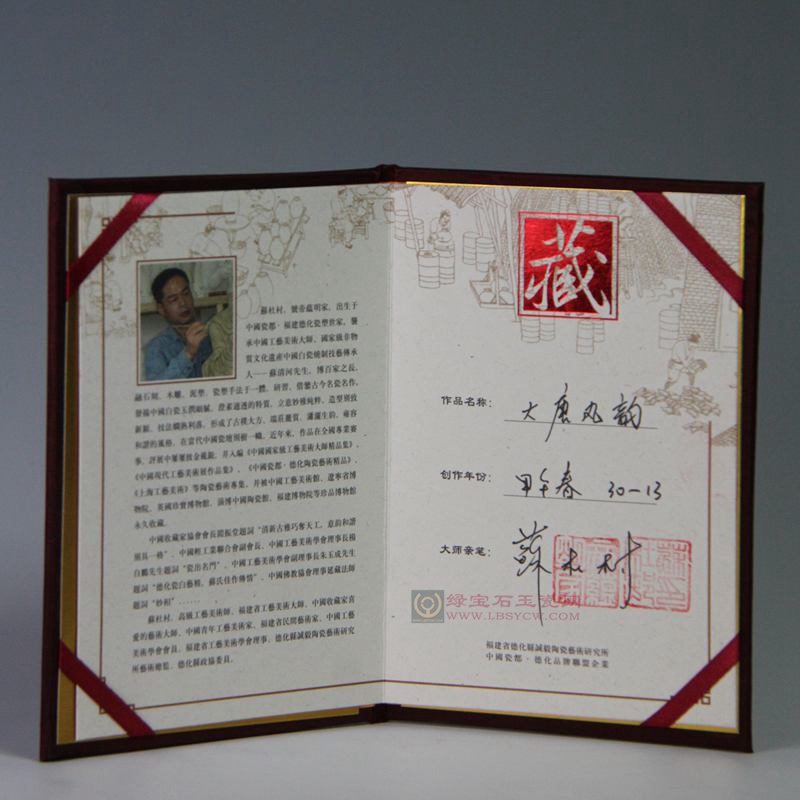 蘇杜村，號帝蘊明家，出生于
中國瓷都·福建德化瓷塑世家，襲
承中國工藝美術大師、國家級非物
質文化遺産中國白瓷燒制技藝傳承
人——蘇清河先生，博百家之長，
融石刻、木雕、泥塑、瓷塑手法于一體，研習、借鑒古今名瓷名作，
發揚中國白瓷玉潤細膩、澄素通透的特質，立意妙雅純粹、造型別致
新穎、技法嫻熟利落，形成了古樸大方、端莊麗質、瀟灑生韵、雍容
和諧的風格，在當代中國瓷壇別樹一幟。近年來，作品在全國專業賽
事、評展中屢屢拔金戴銀，并入編《中國國家級工藝美術大師精品集》、
《中國現代工藝美術展作品集》、《中國瓷都·德化陶瓷藝術精品》、
《上海工藝美術》等陶瓷藝術專集，并被中國工藝美術館、遼寧省博
物院、英國珍寶博物館、淄博中國陶瓷館、福建博物院等珍品博物館
永久收藏。
中國收藏家協會會長閻振堂題詞“清新古雅巧奪天工，意韵和諧
別具一格”、中國輕工業聯合會副會長、中國工藝美術學會理事長楊
自鵬先生題詞“瓷出名門”、中國工藝美術學會副理事長朱玉成先生
題詞“德化瓷白藝精、蘇氏佳作傳情”、中國佛教協會理事延藏法師
題詞“妙相”……
蘇杜村，高級工藝美術師、福建省工藝美術大師、中國收藏家喜
愛的藝術大師、中國青年工藝美術家、福建省民間藝術家、中國工藝
美術學會會員、福建省工藝美術學會理事、德化縣誠毅陶瓷藝術研究
所藝術總監、德化縣政協委員。
藏
作品名称： 大唐丸韵
创作年份： 甲午春 30-13
大师亲笔： 蘇杜村
绿宝石玉瓷
WWW.LBSYCW.COM
福建省德化縣誠毅陶瓷藝術研究所
中國瓷都·德化品牌聯盟企業